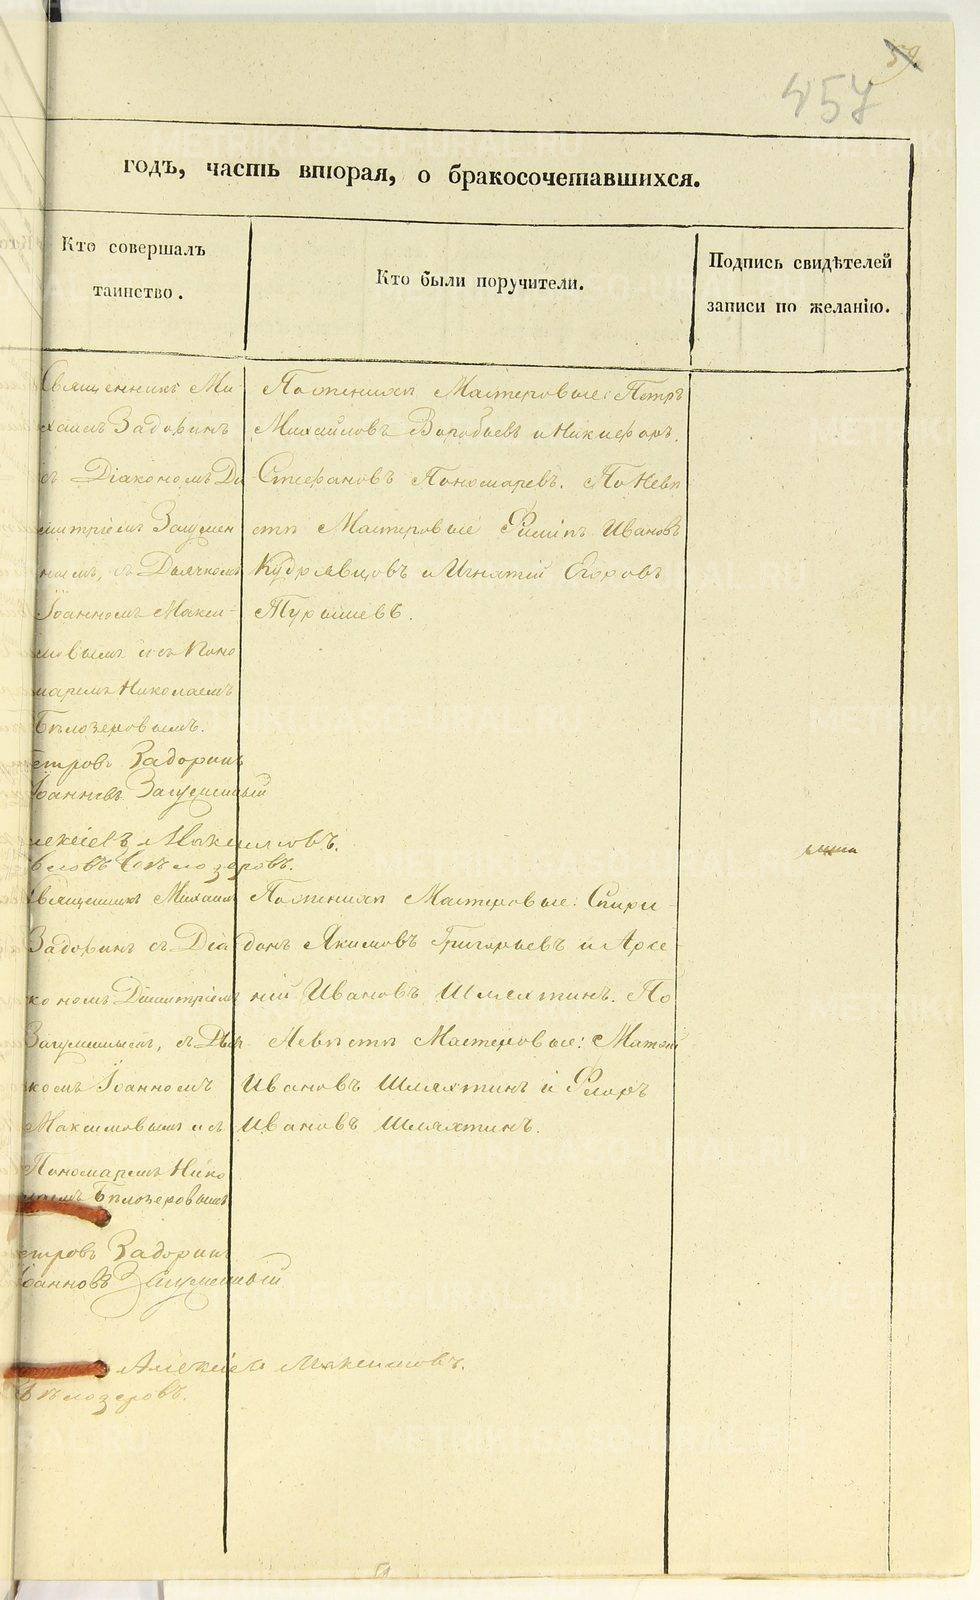 59.
457
годъ, часть вторая, о бракосочетавшихся.
Кто совершалъ
таинство.
Кто были поручители.
Подпись свидѣтелей
записи по желанію.
Священникъ Ми-
хаилъ Задоринъ
съ Діакономъ Ди
митріемъ Загумен
нымъ, съ Дьячкомъ
Іоанномъ Макси-
мовымъ и съ Поно
маремъ Николаемъ
Бѣлозеровымъ.
етровъ Задоринъ
Іоанновъ Загуменный
лексіевъ Максимовъ.
Бѣлозеровъ.
По женихѣ Мастеровые: Петръ
Михайловъ Воробьевъ и Никифоръ
Стефановъ Пономаревъ. По Невѣ
стѣ Мастеровые Филипъ Ивановъ
Кудрявцовъ и Игнатій Егоровъ
Турышевъ.
Священникъ Михаилъ
Задоринъ съ Діа
кономъ Димитріемъ
Загуменнымъ, съ Дьяч
комъ Іоанномъ
Максимовымъ и съ
Пономаремъ Нико
лаемъ Бѣлозеровымъ
етровъ Задоринъ
Іоанновъ Загуменный
Алексіевъ Максимовъ.
Бѣлозеровъ.
По женихѣ Мастеровые: Спири-
донъ Якимовъ Григорьевъ и Арсе-
ній Ивановъ Шляхтинъ. По
Невѣстѣ Мастеровые: Матѳій
Ивановъ Шляхтинъ и Флоръ
Ивановъ Шляхтинъ.
METRIKI.GASO-URAL.RU